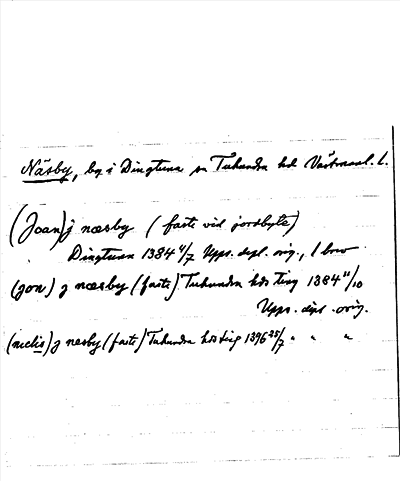 Näsby, by i Dingtuna sn Tuhundra hd Västmanl. l.
(Joan) j næsby (faste vid jordbyte)
Dingtuna 1384 4/7 Upps. depl. orig., 1 brev
(jon) j næsby (faste) Tuhundra hds ting 1384 11/10
Upps. dipl. orig.
(niclis) j nesby (faste) Tuhundra hds ting 1396 25/7 " " "